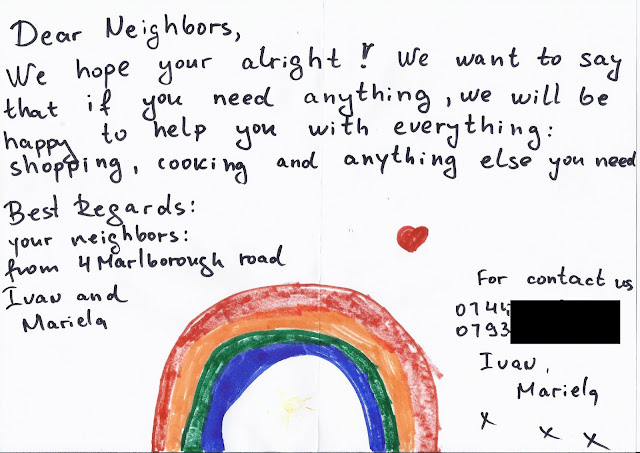 Dear Neighbors,
We hope your alright! We want to say
that if you need anything, we will be
happy to help you with everything:
shopping, cooking and anything else you need
Best Regards:
your neighbors:
from 4 Marlborough road
Ivan and
Mariela
For contact us
0744
0793
Ivan,
Mariela
x x x